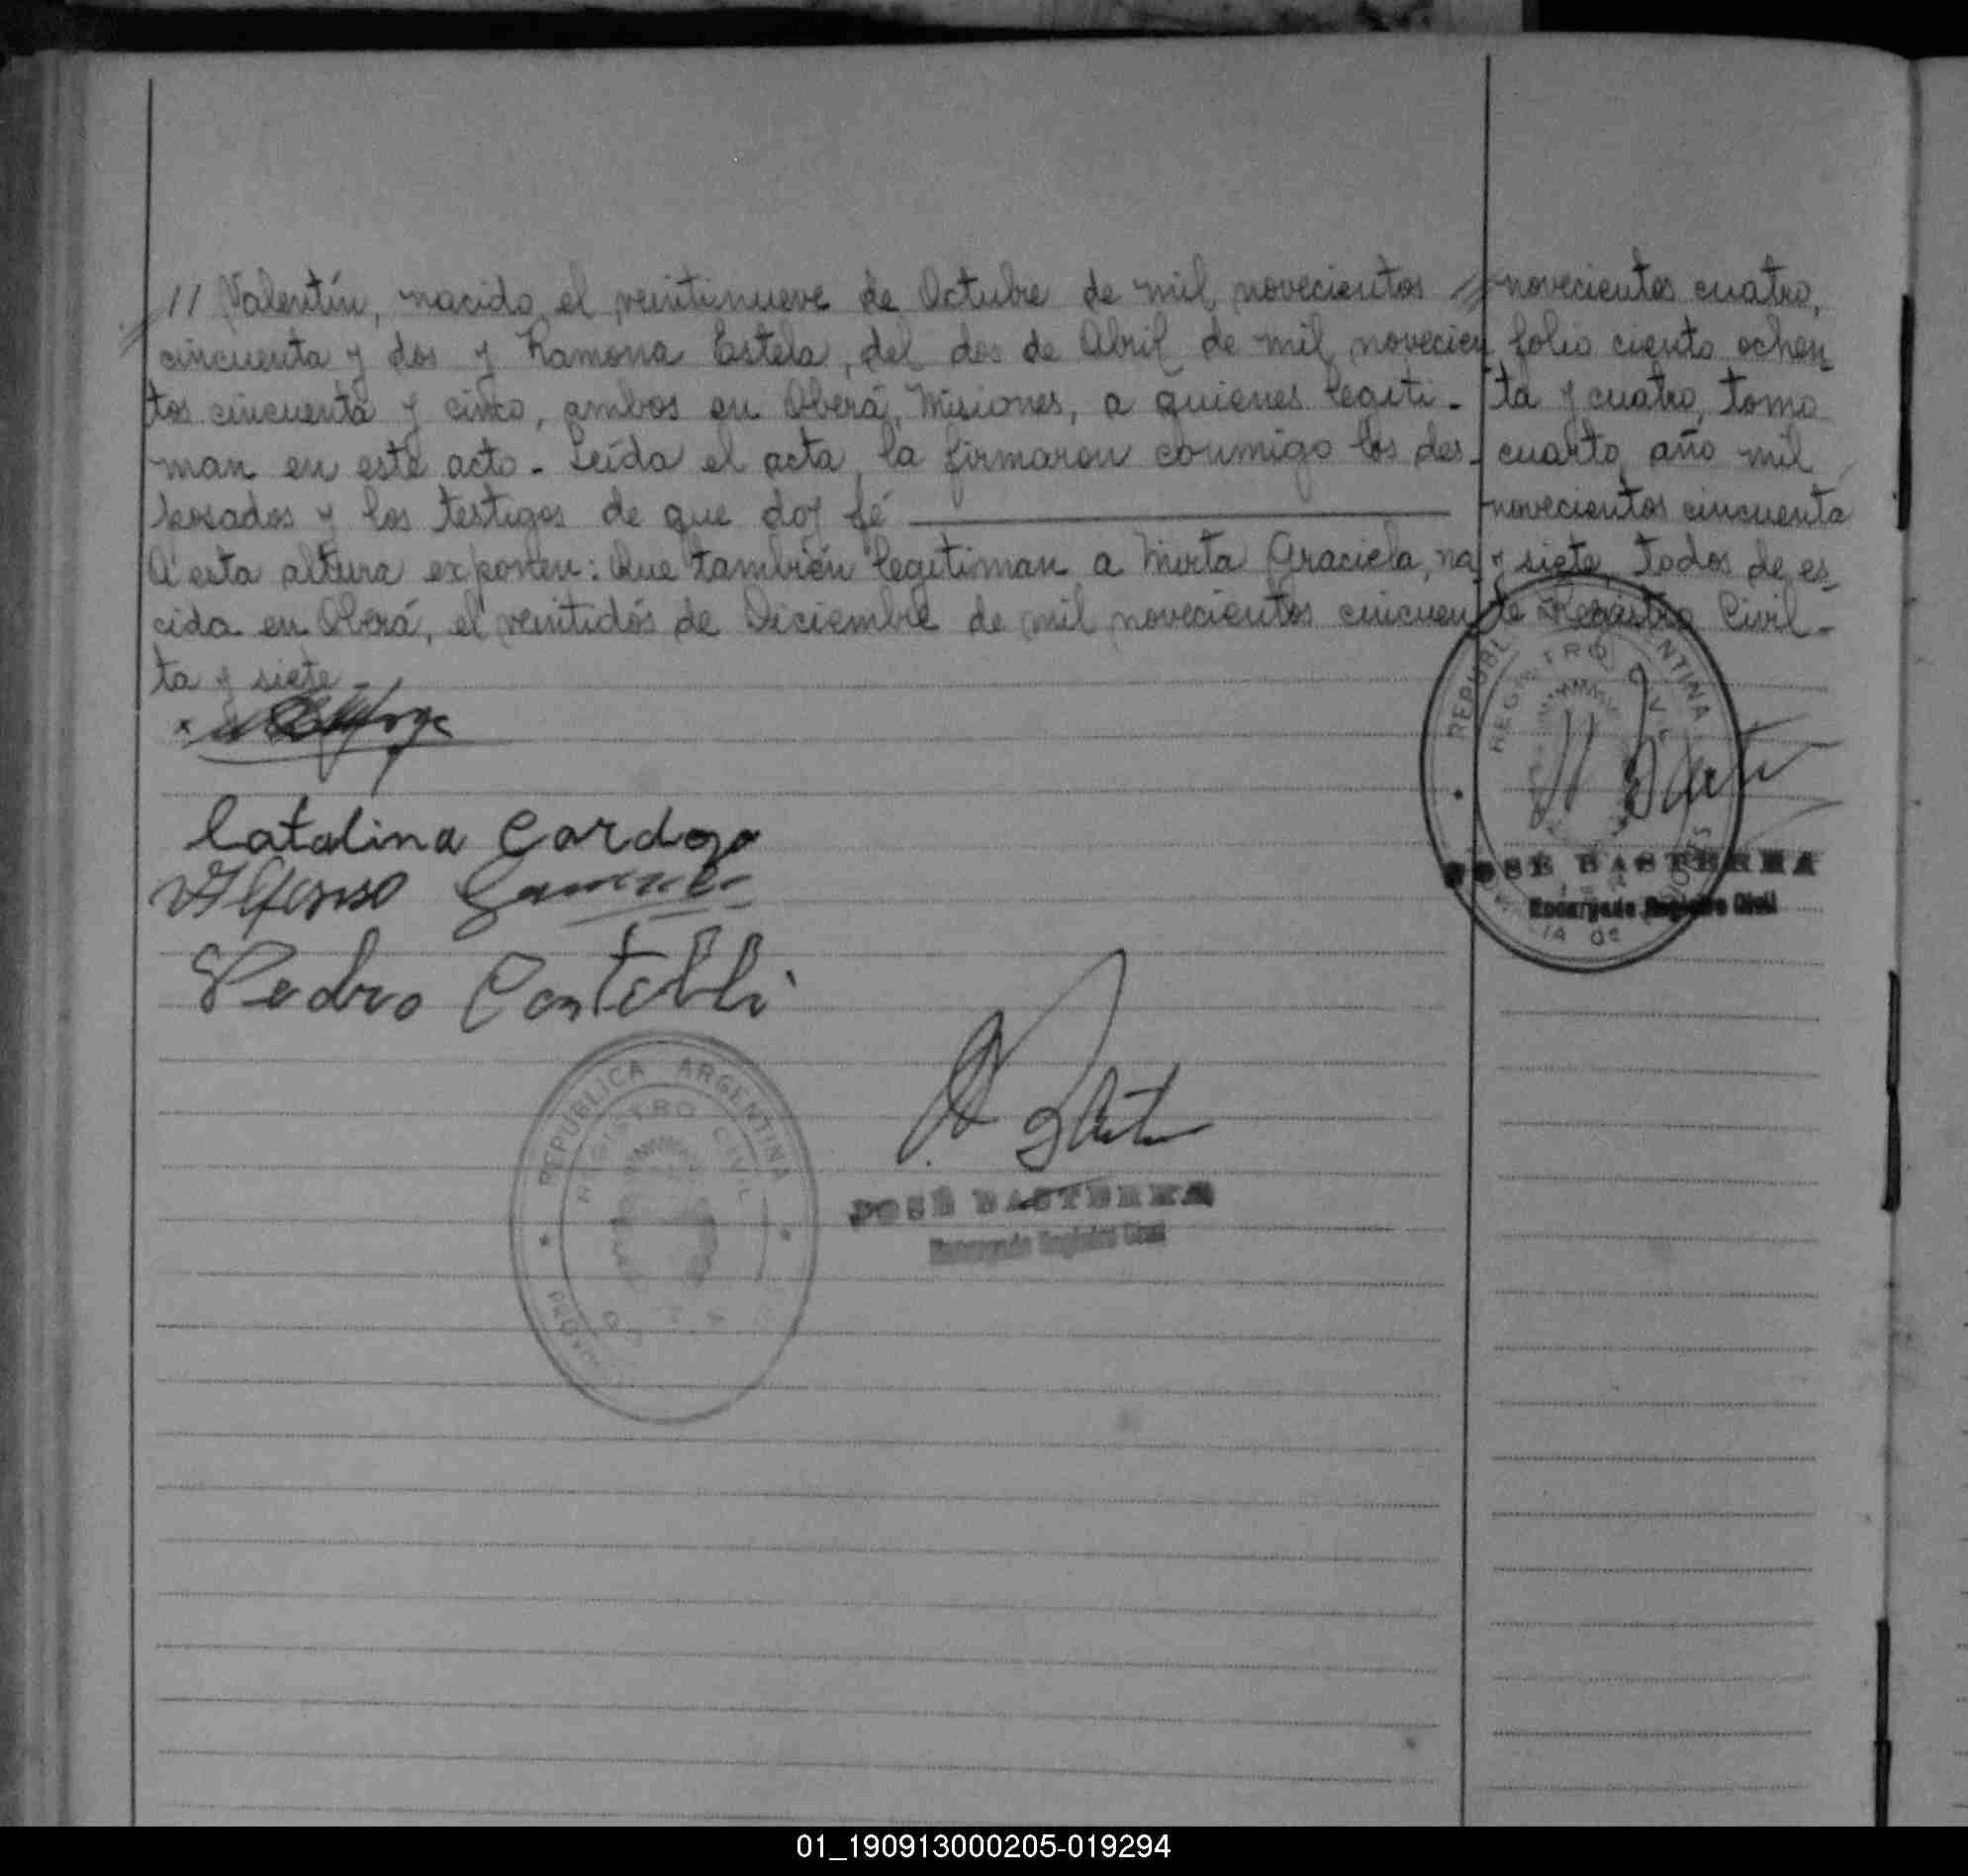 // Valentín, nacido el veintinueve de Octubre de mil novecientos //
cincuenta y dos y Ramona Estela, del dos de Abril de mil novecien
tos cincuenta y cinco, ambos en Oberá, Misiones, a quienes legiti-
man en este acto.- Leída el acta, la firmaron conmigo los des-
posados y los testigos de que doy fé
A esta altura exponen: Que también legitiman a Mirta Graciela, na
cida en Oberá, el veintidós de Diciembre de mil novecientos cincuen
ta y siete.-
novecientos cuatro,
folio ciento ochen
ta y cuatro, tomo
cuarto, año mil
novecientos cincuenta
y siete, todos de es
te Registro Civil.-
REPUBLICA ARGENTINA
REGISTRO CIVIL
JOSÉ BASTERRA
Encargado Registro Civil
Catalina Cardozo
Alfonso
Pedro Castelli
REPUBLICA ARGENTINA
REGISTRO CIVIL
JOSÉ BASTERRA
Encargado Registro Civil
01_190913000205-019294